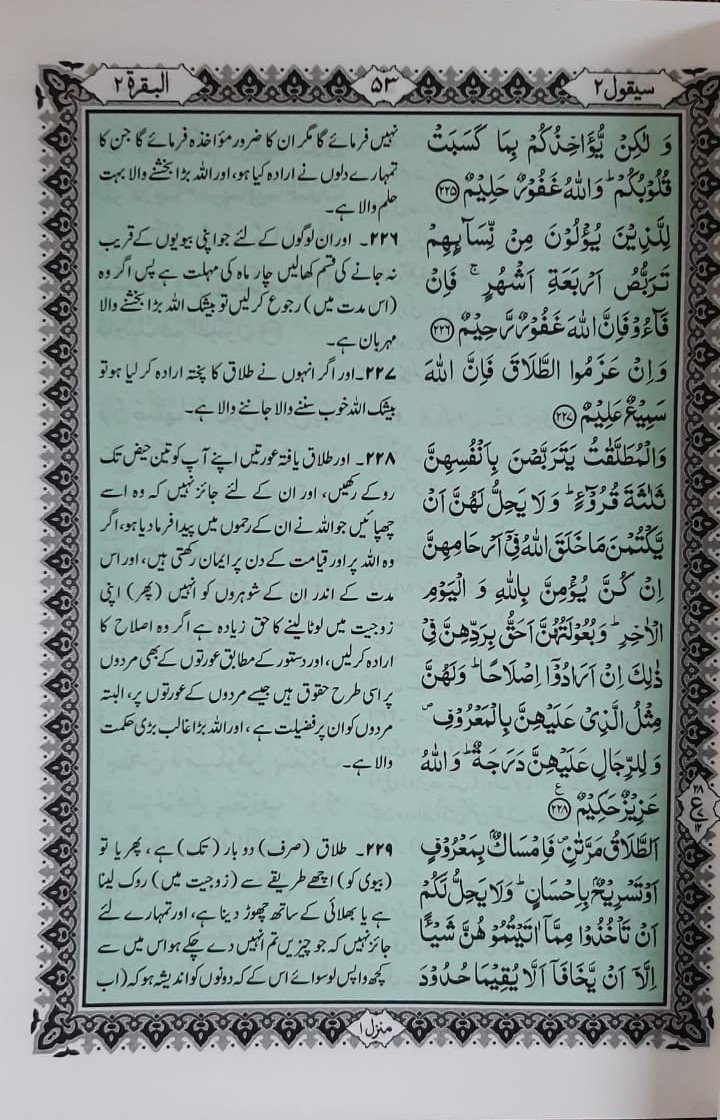 سیقول ٢
٥٣
البقرة ٢
وَ لٰكِنْ يُّؤَاخِذُكُمْ بِمَا كَسَبَتْ
قُلُوْبُكُمْ ؕ وَاللّٰهُ غَفُوْرٌ حَلِيْمٌ ﴿٢٢٥﴾
لِلَّذِيْنَ يُؤْلُوْنَ مِنْ نِّسَآىِٕهِمْ
تَرَبُّصُ اَرْبَعَةِ اَشْهُرٍ ۚ فَاِنْ
فَآءُوْ فَاِنَّ اللّٰهَ غَفُوْرٌ رَّحِيْمٌ ﴿٢٢٦﴾
وَاِنْ عَزَمُوا الطَّلَاقَ فَاِنَّ اللّٰهَ
سَمِيْعٌ عَلِيْمٌ ﴿٢٢٧﴾
وَالْمُطَلَّقٰتُ يَتَرَبَّصْنَ بِاَنْفُسِهِنَّ
ثَلٰثَةَ قُرُوْٓءٍ ؕ وَلَا يَحِلُّ لَهُنَّ اَنْ
يَّكْتُمْنَ مَا خَلَقَ اللّٰهُ فِيْٓ اَرْحَامِهِنَّ
اِنْ كُنَّ يُؤْمِنَّ بِاللّٰهِ وَ الْيَوْمِ
الْاٰخِرِ ؕ وَبُعُوْلَتُهُنَّ اَحَقُّ بِرَدِّهِنَّ فِيْ
ذٰلِكَ اِنْ اَرَادُوْٓا اِصْلَاحًا ؕ وَلَهُنَّ
مِثْلُ الَّذِيْ عَلَيْهِنَّ بِالْمَعْرُوْفِ ۪
وَ لِلرِّجَالِ عَلَيْهِنَّ دَرَجَةٌ ؕ وَاللّٰهُ
عَزِيْزٌ حَكِيْمٌ ﴿٢٢٨﴾ ع
اَلطَّلَاقُ مَرَّتٰنِ ۪ فَاِمْسَاكٌۢ بِمَعْرُوْفٍ
اَوْ تَسْرِيْحٌۢ بِاِحْسَانٍ ؕ وَلَا يَحِلُّ لَكُمْ
اَنْ تَاْخُذُوْا مِمَّآ اٰتَيْتُمُوْهُنَّ شَيْـًٔا
اِلَّآ اَنْ يَّخَافَآ اَلَّا يُقِيْمَا حُدُوْدَ
نہیں فرمائے گا مگر ان کا ضرور مؤاخذہ فرمائے گا جن کا
تمہارے دلوں نے ارادہ کیا ہو، اور اللہ بڑا بخشنے والا بہت
حلم والا ہے۔
٢٢٦۔ اور ان لوگوں کے لئے جو اپنی بیویوں کے قریب
نہ جانے کی قسم کھالیں چار ماہ کی مہلت ہے پس اگر وہ
(اس مدت میں) رجوع کر لیں تو بیشک اللہ بڑا بخشنے والا
مہربان ہے۔
٢٢٧۔ اور اگر انہوں نے طلاق کا پختہ ارادہ کر لیا ہو تو
بیشک اللہ خوب سننے والا جاننے والا ہے۔
٢٢٨۔ اور طلاق یافتہ عورتیں اپنے آپ کو تین حیض تک
روکے رکھیں، اور ان کے لئے جائز نہیں کہ وہ اسے
چھپائیں جو اللہ نے ان کے رحموں میں پیدا فرما دیا ہو، اگر
وہ اللہ پر اور قیامت کے دن پر ایمان رکھتی ہیں، اور اس
مدت کے اندر ان کے شوہروں کو انہیں (پھر) اپنی
زوجیت میں لوٹا لینے کا حق زیادہ ہے اگر وہ اصلاح کا
ارادہ کر لیں، اور دستور کے مطابق عورتوں کے بھی مردوں
پر اسی طرح حقوق ہیں جیسے مردوں کے عورتوں پر، البتہ
مردوں کو ان پر فضیلت ہے، اور اللہ بڑا غالب بڑی حکمت
والا ہے۔
٢٢٩۔ طلاق (صرف) دو بار (تک) ہے، پھر یا تو
(بیوی کو) اچھے طریقے سے (زوجیت میں) روک لینا
ہے یا بھلائی کے ساتھ چھوڑ دینا ہے، اور تمہارے لئے
جائز نہیں کہ جو چیزیں تم انہیں دے چکے ہو اس میں سے
کچھ واپس لو سوائے اس کے کہ دونوں کو اندیشہ ہو کہ (اب
٢٨
ع
١٢
منزل ١